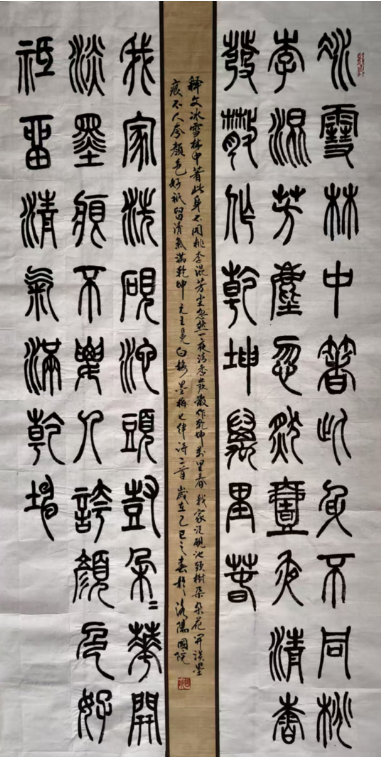 冰雪林中著此身不同桃
李混芳塵忽然壹夜清香
發散作乾坤萬里春
釋文冰雪林中著此身不同桃李混芳尘忽然一夜清香發散作乾坤万里春 我家洗硯池頭樹朵朵花开淡墨
痕不人夸顏色好祇留清氣滿乾坤 元王冕白梅墨梅七律詩二首 歲在乙巳之春於
我家洗硯池頭樹朵〻華開
淡墨痕不要人誇顏色好
祇留清氣滿乾坤